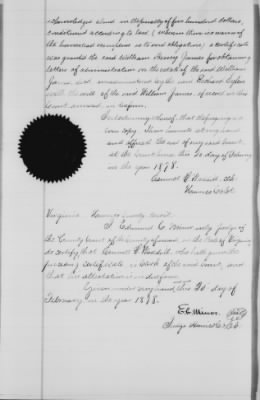 acknowledged bond in the penalty of five hundred dollars,
conditioned according to law
the               is no obligation, a certificate
was granted the said William Henry James for obtaining
letters of administration on the estate of the said William
James, dec'd             and Richard
with the will of the said William James, of record in this
Court annexed, in due form.
In testimony whereof, that the foregoing is a
true copy I have hereunto set my hand
and affixed the seal of my said Court,
at the Court house this 20 day of February
in the year 1878.
Samuel P. Waddill, Clk
Henrico Co. Ct.
Virginia Henrico County Court:
I Edmund C. Minor only judge of
the County Court of Henrico County in the State of Virginia
do certify, that Samuel P. Waddill, who hath given the
preceding certificate is Clerk of the said Court, and
that his attestation is in due form.
Given under my hand this 20 day of
February in the year 1878.
E.C. Minor.
Judge Henrico Co. Ct.